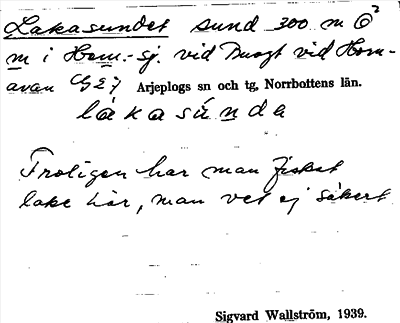 Lakasundet sund 300 m O²
m i Horn.-sj. vid vid Horn-
avan G27 Arjeplogs sn och tg, Norrbottens län.
lakasúnda
Troligen har man fisket
lake här, man vet ej säkert
Sigvard Wallström, 1939.